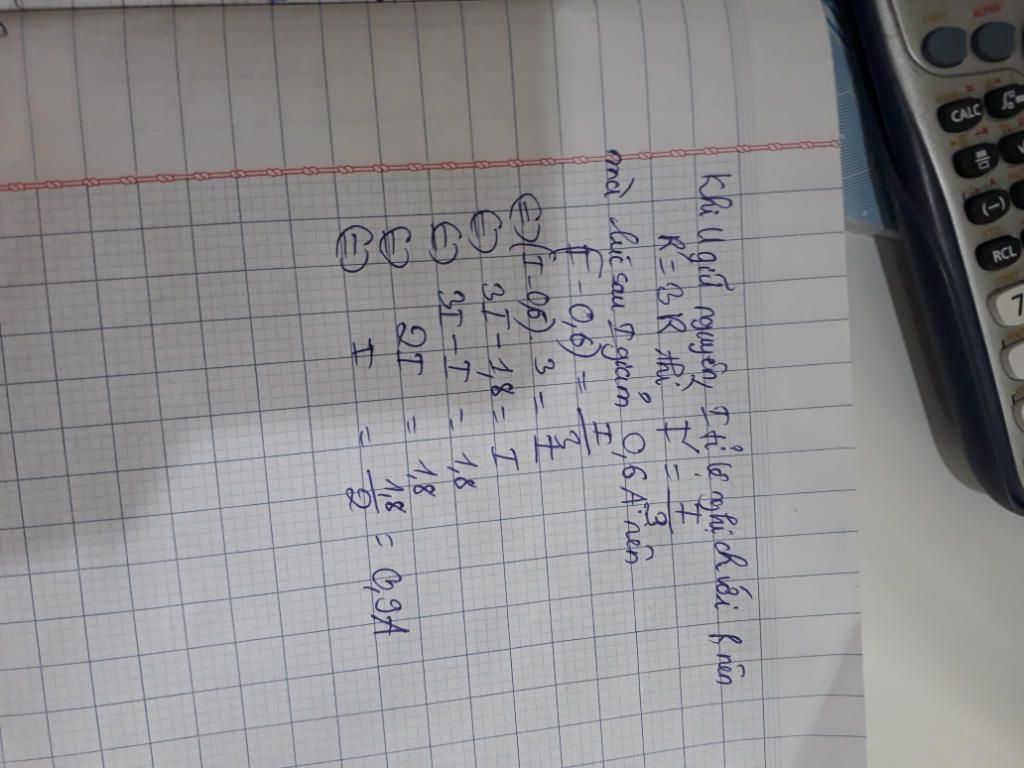 Khi U giữ nguyên, I tỉ lệ nghịch với R nên
R = 3R thì I' = I/3
mà lúc sau I giảm 0,6A nên
(I - 0,6) = I/3
⇔ (I - 0,6) . 3 = I
⇔ 3I - 1,8 = I
⇔ 3I - I = 1,8
⇔ 2I = 1,8
⇔ I = 1,8/2 = 0,9A
ALPHA
CALC
(-)
STO
RCL
7